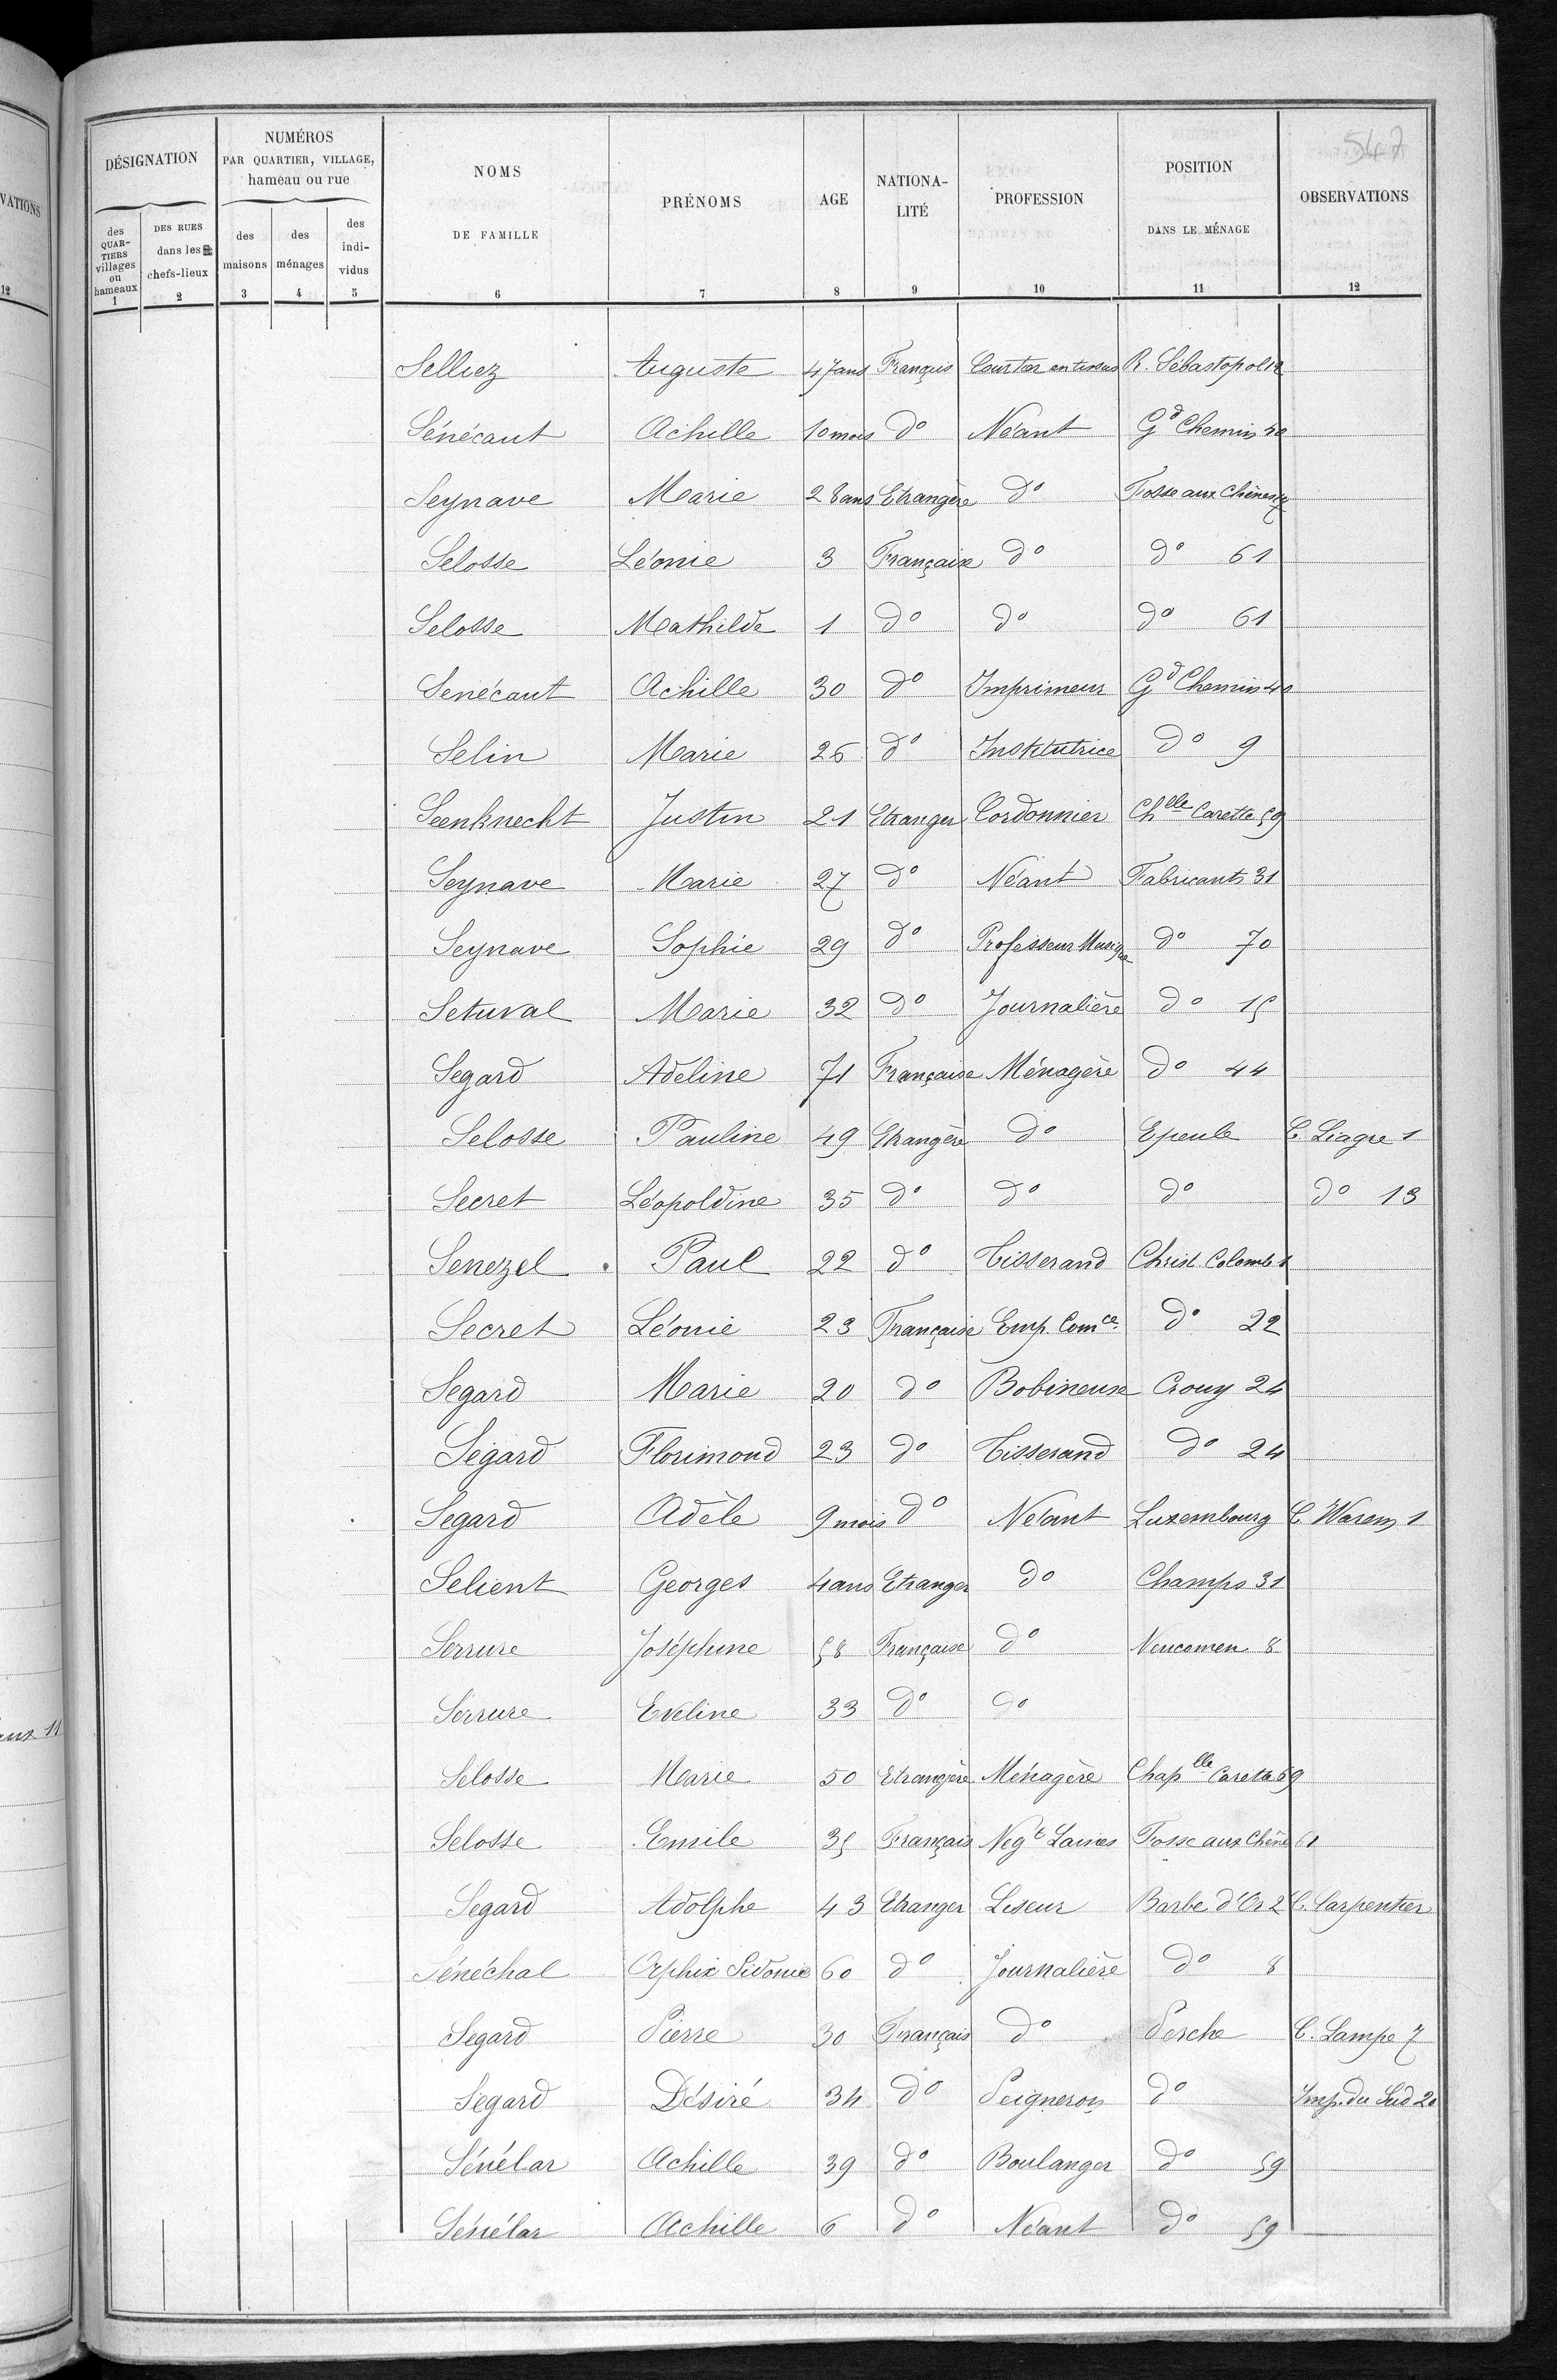 547
DÉSIGNATION
NUMÉROS
PAR QUARTIER, VILLAGE,
hameau ou rue
des QUAR-TIERS villages ou hameaux 1
DES RUES dans les chefs-lieux 2
des maisons 3
des ménages 4
des indi-vidus 5
NOMS DE FAMILLE 6
PRÉNOMS 7
AGE 8
NATIONA-LITÉ 9
PROFESSION 10
POSITION DANS LE MÉNAGE 11
OBSERVATIONS 12
VATIONS
12
Selliez Auguste 47 ans Français Courtier en tissus R. Sébastopol 12
Sénécaut Achille 10 mois do Néant Gd Chemin 40
Seynave Marie 28 ans Etrangère do Fosse aux Chênes
Selosse Léonie 3 Française do do 61
Selosse Mathilde 1 do do do 61
Senécaut Achille 30 do Imprimeur Gd Chemin 40
Selin Marie 26 do Institutrice do 9
Seenknecht Justin 21 Etranger Cordonnier Chlle Carette 59
Seynave Marie 27 do Néant Fabricants 31
Seynave Sophie 29 do Professeur Musique do 70
Setuval Marie 32 do Journalière do 15
Segard Adeline 71 Française Ménagère do 44
Selosse Pauline 49 Etrangère do Epeule C. Liagre 1
Secret Léopoldine 35 do do do do 13
Senezel Paul 22 do Tisserand Christ. Colomb 1
Secret Léonie 23 Française Emp. Comce do 22
Segard Marie 20 do Bobineuse Crouy 24
Ségard Florimond 23 do Tisserand do 24
Segard Adèle 9 mois do Néant Luxembourg C. Warem 1
Selient Georges 4 ans Etranger do Champs 31
Serrure Joséphine 58 Française do Neucomen 8
Serrure Eveline 33 do do
Selosse Marie 50 Etrangère Ménagère Chaplle Carette 69
Selosse Emile 35 Français Negt Laines Fosse aux Chêne 61
Segard Adolphe 43 Etranger Liseur Barbe d'Or 2 C. Carpentier
Sénéchal Orphix Sidonie 60 do Journalière do 8
Segard Pierre 30 Français do Perche C. Lampe 7
Segard Désiré 34 do Peigneron do Imp. du Sud 20
Sénélar Achille 39 do Boulanger do 59
Sénélar Achille 6 do Néant do 59